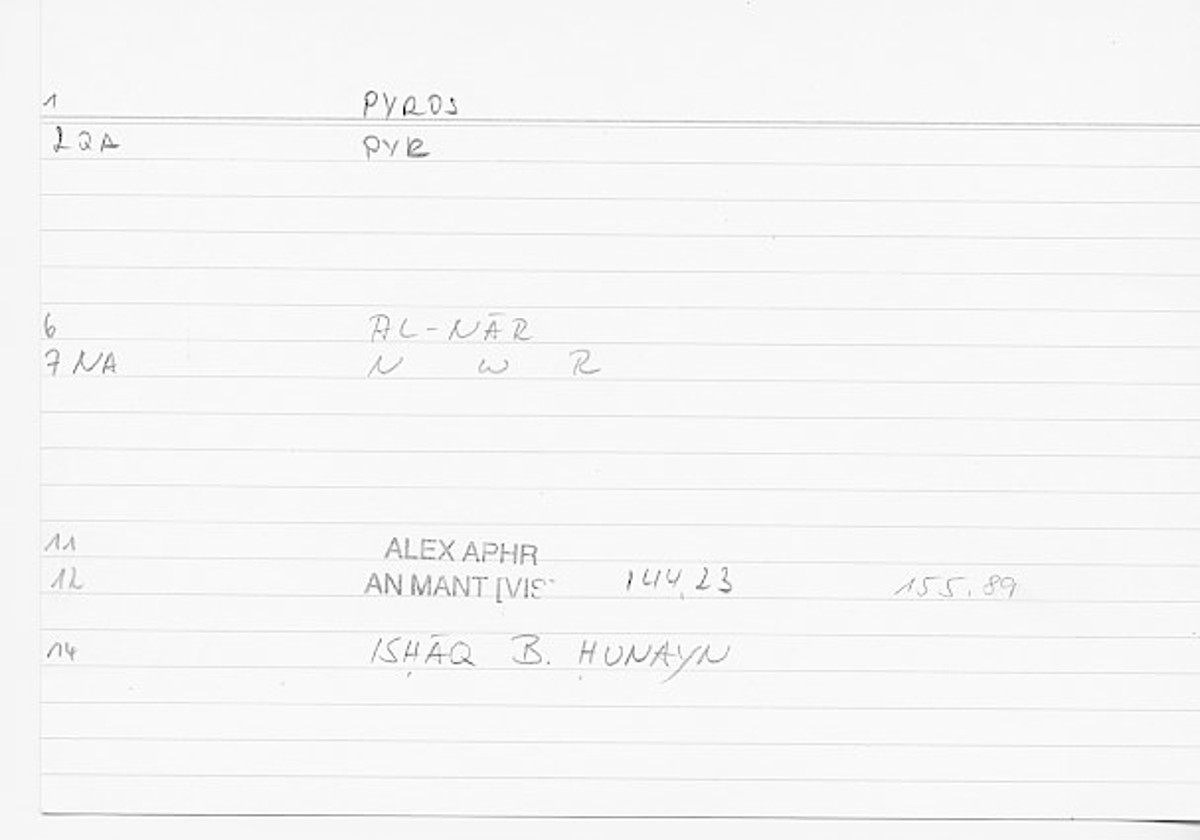 1 PYROS
2 QA PYR
6 AL-NĀR
7 NA N W R
11 ALEX APHR
12 AN MANT [VIS 144,23 155,89
14 ISḤĀQ B. ḤUNAYN